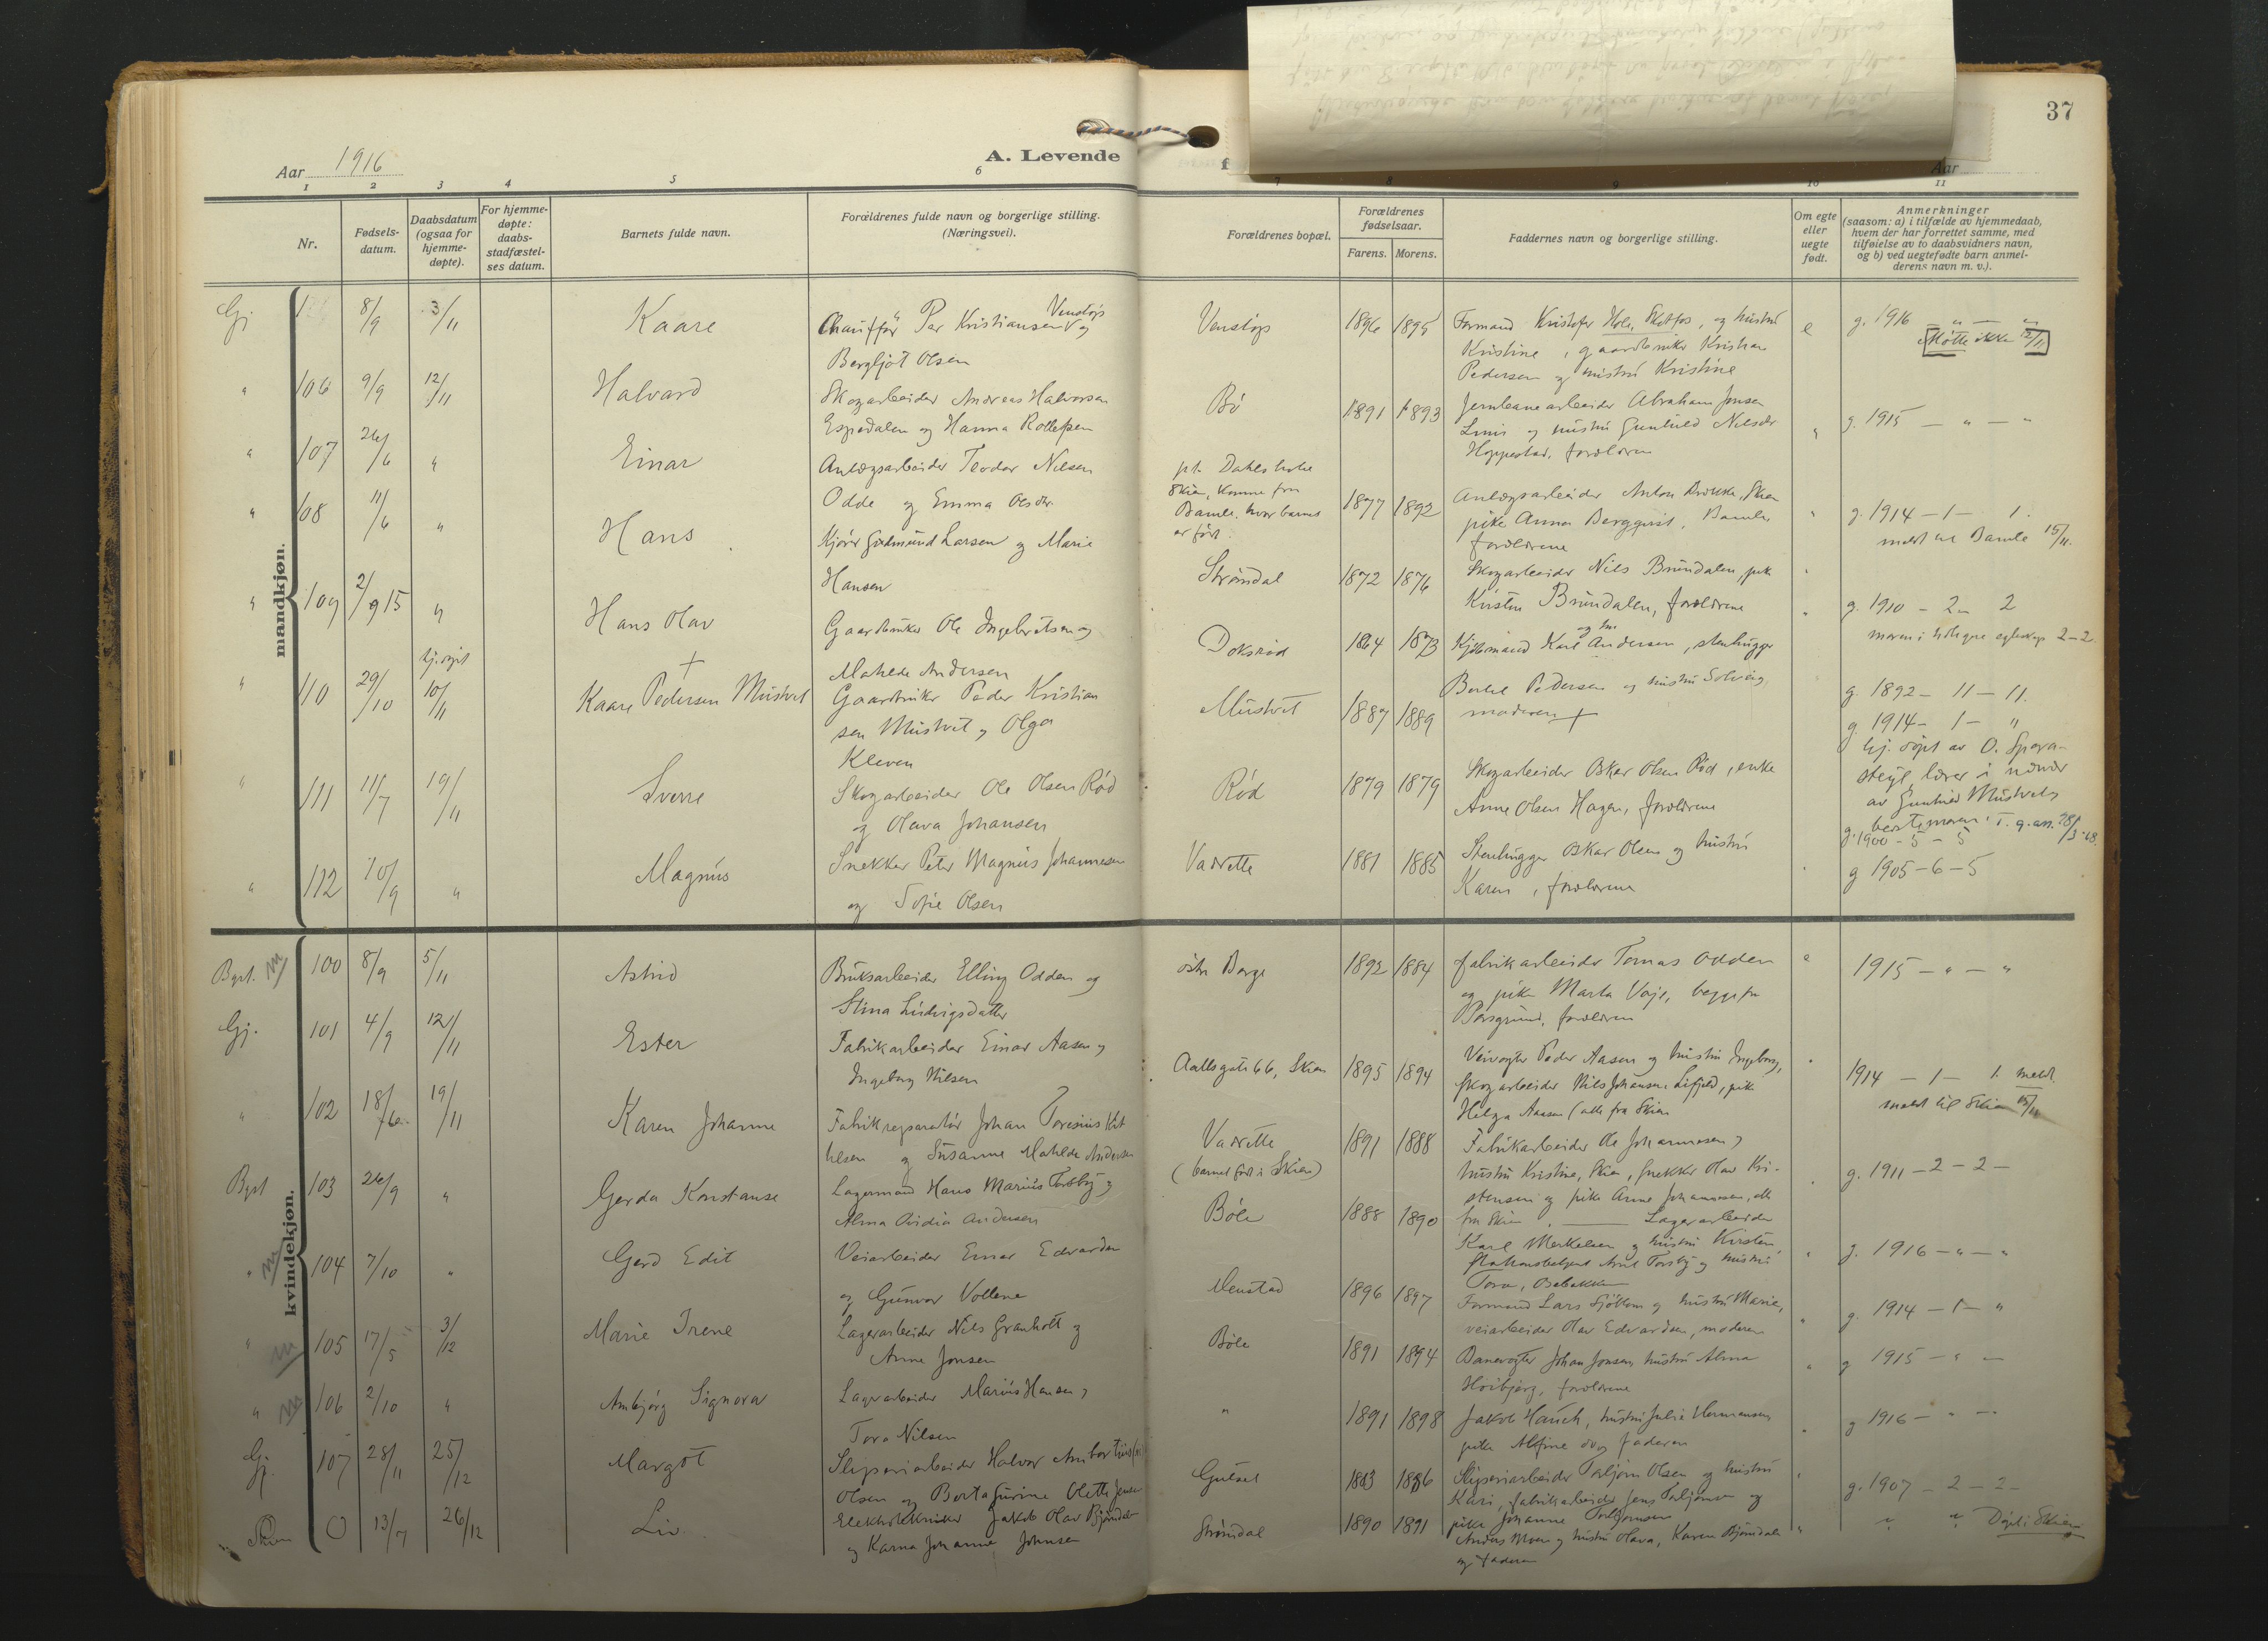 37
Aar 1916
A. Levende
f
Aar
1 2 3 4 5 6 7 8 9 10 11
Nr.
Fødsels-
datum.
Daabsdatum
(ogsaa for
hjemme-
døpte).
For hjemme-
døpte:
daabs-
stadfæstel-
ses datum.
Barnets fulde navn.
Forældrenes fulde navn og borgerlige stilling.
(Næringsvei).
Forældrenes bopæl.
Forældrenes
fødselsaar.
Farens. Morens.
Faddernes navn og borgerlige stilling.
Om egte
eller
uegte
født.
Anmerkninger
(saasom: a) i tilfælde av hjemmedaab,
hvem der har forrettet samme, med
tilføielse av to daabsvidners navn,
og b) ved uegtefødte barn anmel-
derens navn m. v.).
mandkjøn.
Gj 8/9 3/11 Kaare Chauffør Per Kristiansen Venstøp og
Bergljot Olsen
Venstøp 1896 1895 Formand Kristofer Hole, Skotfos, og hustru
Kristine, gaardbruker Kristian
Pedersen og hustru Kristine
e g. 1916 - " - "
Møtte ikke 12/11
" 106 9/9 12/11 Halvard Skogarbeider Andreas Halvorsen
Espedalen og Hanna Rollefsen
Bø 1891 1893 Jernbanearbeider Abraham Jonsen
og hustru Gunhild Nilsdtr
Hoppestad, forældrene
" g. 1915 - " - "
" 107 26/6 " Einar Anlægsarbeider Teodor Nilsen
Odde og Emma Olsdtr.
pt.
Skien, komne fra
Bamle, hvor barnet
er født.
1877 1892 Anlægsarbeider Anton Skien
pike Anna Bergquist, Bamle
forældrene
" g. 1914 - 1 - 1.
meldt til Bamle 15/11.
" 108 11/6 " Hans Kjører Gudmund Larsen og Marie
Hansen
Strømdal 1872 1876 Skogarbeider Nils Brundalen, pike
Kristine Brundalen, forældrene
" g. 1910 - 2 - 2
" 109 2/9 15 " Hans Olav Gaardbruker Ole Ingebretsen og
Matilde Andersen
Doksrød 1864 1873 Kjøbmand Karl Andersen og fru, stenhugger
Bertel Pedersen og hustru Solveig,
moderen +
moren i tidligere egteskap 2-2
g. 1892 - 11 - 11.
" 110 29/10 hj.døpt 10/11 + Kaare Pedersen Mustvet Gaardbruker Peder Kristian
sen Mustvet og Olga
Kleven
Mustvet 1887 1889
g. 1914 - 1 - "
hj. døpt av O. Spora-
steyl lærer i nærvær
av Gunhild Mustvet,
bestemoren. T. g. an. 28/3-18.
" 111 11/7 19/11 Sverre Skogarbeider Ole Olsen Rød
og Olava Johansen
Rød 1879 1879 Skogarbeider Oskar Olsen Rød, enke
Anne Olsen Hagen, forældrene
g. 1900 - 5 - 5
" 112 10/9 " Magnus Snekker Peter Magnus Johannesen
og Sofie Olsen
Vadrette 1881 1885 Stenhugger Oskar Olsen og hustru
Karen, forældrene
g 1905 - 6 - 5
kvindekjøn.
Bgst. m 100 8/9 5/11 Astrid Bruksarbeider Elling Odden og
Stina Ludvigsdatter
østre Borge 1892 1884 Fabrikarbeider Tomas Odden
og pike Marta Vaje, begge fra
Porsgrund, forældrene
e 1915 - " - "
Gj. 101 4/9 12/11 Ester Fabrikarbeider Einar Aasen og
Ingeborg Nilsen
Aallsgate 66, Skien 1895 1894 Veivogter Peder Aasen og hustru Ingeborg,
skogarbeider Nils Johansen Lifjeld, pike
Helga Aasen (alle fra Skien
" 1914 - 1 - 1. meldt
meldt til Skien 15/11
" 102 18/6 19/11 Karen Johanne Fabrikreparatør Johan Toresius Ket
tilsen og Susanne Matilde Andersen
Vadrette
(barnet født i Skien)
1891 1888 Fabrikarbeider Ole Johannesen og
hustru Kristine, Skien, snekker Olav Kri-
stensen og pike Anne Johannesen, alle
fra Skien.
g. 1911 - 2 - 2 -
Bgst 103 26/9 " Gerda Konstanse Lagermand Hans Marius Torsby og
Alma Ovidia Andersen
Bøle 1888 1890 Lagerarbeider
Karl Merkelsen og hustru Kirsten,
stationsbetjent Arnt Torsby og hustru
Tora, Osebakken
" g. 1916 - " - "
" m 104 7/10 " Gerd Edit Veiarbeider Einar Edvardsen
og Gunvor Vollene
Menstad 1896 1897 Formand Lars Sjøttem og hustru Marie,
veiarbeider Olav Edvardsen, moderen
" g. 1914 - 1 - "
" m 105 17/5 3/12 Marie Irene Lagerarbeider Nils Granholt og
Anne Jonsen
Bøle 1891 1894 Banevogter Johan Jonsen, hustru Alma
Høibjerg, forældrene
" g 1915 - " -
" m 106 2/10 " Ambjørg Signora Lagerarbeider Marius Hansen og
Tora Nilsen
" 1891 1898 Jakob Hauch, hustru Julie Hermansen,
pike Alfine og faderen
" g 1916 - " -
Gj. 107 28/11 25/12 Margot Sliperiarbeider Halvor
Olsen og Berta Gurine Olette Jensen
Gulset 1883 1886 Sliperiarbeider Torbjørn Olsen og hustru
Kari, fabrikarbeider Jens Torbjørnsen og
pike Johanne Torbjørnsen
" g. 1907 - 2 - 2 -
Skien 0 13/7 26/12 Liv Elektrotekniker Jakob Olav Bjørndalen
og Karna Johanne Johnsen
Strømdal 1890 1891 Anders Moen og hustru Olava, Karen Bjørndalen
og faderen
" " " Døpt i Skien